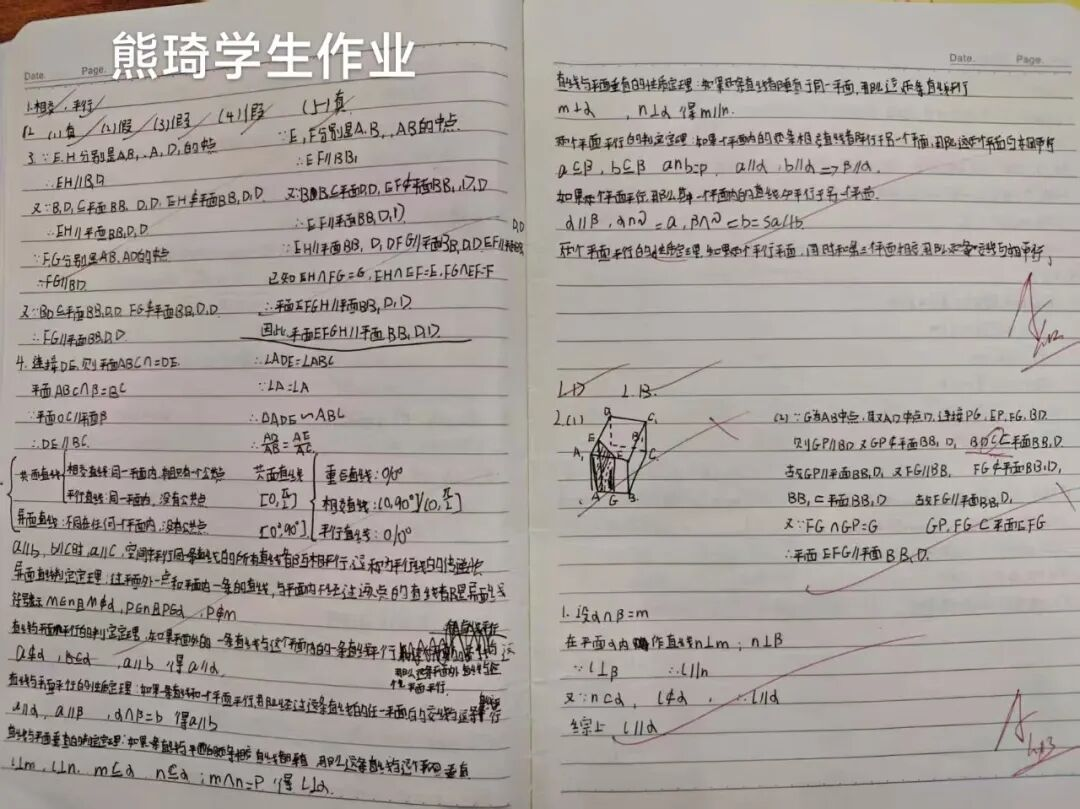 熊琦学生作业
Date. Page.
1.相交,平行
2. (1)真 (2)假 (3)假 (4)假 (5)真
3. ∵E,H分别是A,B,,A,D,的中点
∴EH//B,D,
又∵B,D,⊆平面BB,D,D EH⊄平面BB,D,D
∴EH//平面BB,D,D
∵F,G分别是AB,AD的中点
∴FG//BD.
又∵BD⊆平面BB,D,D FG⊄平面BB,D,D.
∴FG//平面BB,D,D
∵E,F分别是A,B,,AB的中点
∴EF//BB,
又∵BB,⊆平面D,D,EF⊄平面BB,,D,D
∴EF//平面BB,D,D
∵EH//平面BB,D,D FG//平面BB,D,D EF//平面BB,D,D
已知EH∩FG=G,EH∩EF=E,FG∩EF=F
∴平面EFGH//平面BB,D,D
因此,平面EFGH//平面BB,D,D.
4.连接DE,则平面ABC∩=DE.
平面ABC∩β=BC
∵平面α//平面β
∴DE//BC.
∴∠ADE=∠ABC
∵∠A=∠A
∴△ADE∽ABC
∴AD/AB=AE/AC
共面直线 相交直线:同一平面内,有且只有一个公共点
平行直线:同一平面内,没有公共点
异面直线:不同在任何一个平面内,没有公共点
共面直线
[0,π/2]
[0°,90°]
重合直线:0/0°
相交直线:(0,90°]/(0,π/2]
平行直线:0/0°
a//b,b//c时,a//c,空间中平行于同一条直线的所有直线都互相平行,这称为平行线的传递性
异面直线判定定理:过平面外一点和平面内一条的直线,与平面内不经过该点的直线都是异面直线
符号表示 m∈α且M∉α,P∈α且P∈α,P∉m
直线与平面平行的判定定理:如果平面外的一条直线与这个平面内的一条直线平行
那么这条平面外直线与这个平面平行.
a⊄α,b⊆α,a//b 得a//α.
直线与平面平行的性质定理:如果一条直线和一个平面平行,那么经过这条直线的任一平面与交线与这条直线平行
a//α,a//β,α∩β=b 得a//b
直线与平面垂直的判定定理:如果一条直线与平面的两条相交直线都垂直,那么这条直线与这个平面垂直
l⊥m,l⊥n,m⊆α n⊆α;m∩n=P 得l⊥α.
Date. Page.
直线与平面垂直的性质定理:如果两条直线都垂直于同一平面,那么这两条直线平行
m⊥α,n⊥α 得m//n.
两个平面平行的判定定理:如果一个平面内的两条相交直线都平行于另一个平面,那么这两个平面互相平行
a⊆β,b⊆β a∩b=p,a//α,b//α⇒β//α
如果两个平面平行,那么其中一个平面内的直线平行于另一个平面.
两个平面平行的性质定理:如果两个平行平面,同时和第三个平面相交,那么两条交线互相平行
1.D 1.B.
2.(1)
(2)∵G为AB中点,取AD中点P,连接PG,EP,FG,BD
则GP//BD 又GP⊄平面BB,D,BD⊆平面BB,D
故GP//平面BB,D,又FG//BB, FG⊄平面BB,D,
BB,⊂平面BB,D 故FG//平面BB,D,
又∵FG∩GP=G GP,FG⊂平面EFG
∴平面EFG//平面BB,D.
1.设α∩β=m
在平面α内 作直线n⊥m;n⊥β
∵l⊥β ∴l//n
又∵n⊂α,l⊄α,∴l//α
综上,l//α